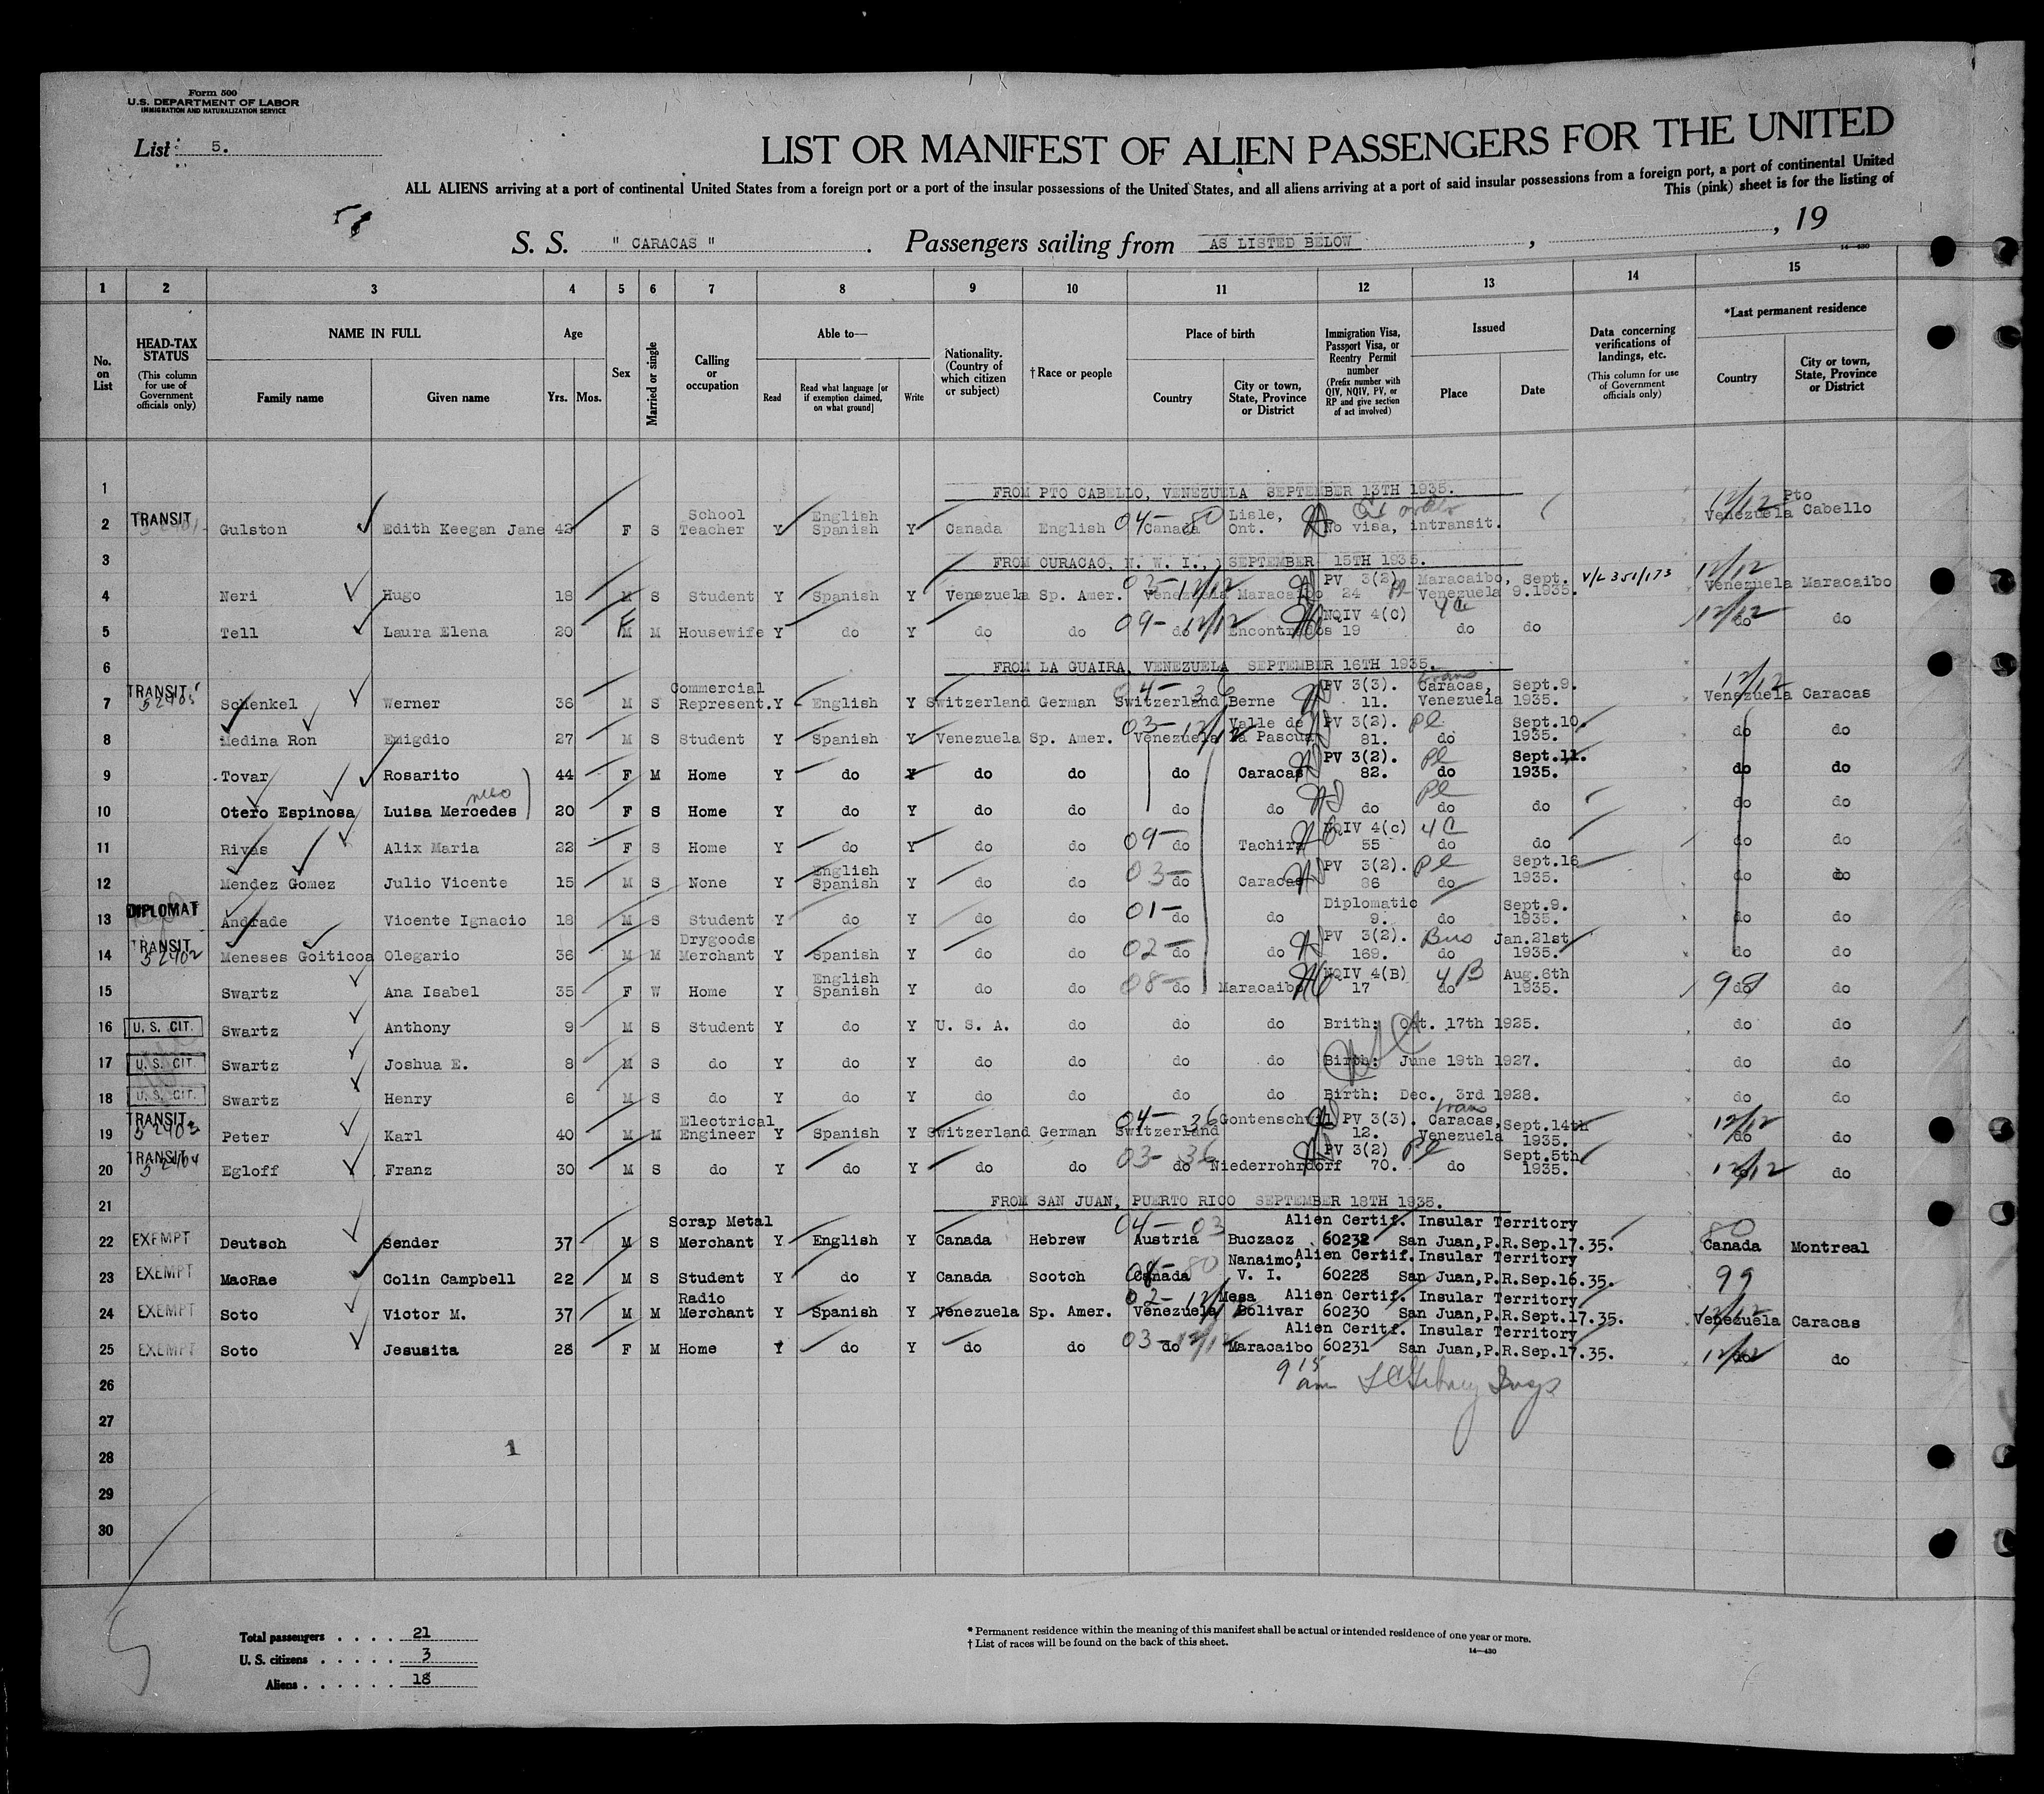 Form 500
U.S. DEPARTMENT OF LABOR
IMMIGRATION AND NATURALIZATION SERVICE
List 5.
LIST OR MANIFEST OF ALIEN PASSENGERS FOR THE UNITED
ALL ALIENS arriving at a port of continental United States from a foreign port or a port of the insular possessions of the United States, and all aliens arriving at a port of said insular possessions from a foreign port, a port of continental United
This (pink) sheet is for the listing of
S. S. " CARACAS ". Passengers sailing from AS LISTED BELOW , , 19
14—430
1 2 3 4 5 6 7 8 9 10 11 12 13 14 15
No. on List
HEAD-TAX STATUS (This column for use of Government officials only)
NAME IN FULL Family name Given name
Age Yrs. Mos.
Sex
Married or single
Calling or occupation
Able to— Read Read what language [or if exemption claimed, on what ground] Write
Nationality. (Country of which citizen or subject)
†Race or people
Place of birth Country City or town, State, Province or District
Immigration Visa, Passport Visa, or Reentry Permit number (Prefix number with QIV, NQIV, PV, or RP and give section of act involved)
Issued Place Date
Data concerning verifications of landings, etc. (This column for use of Government officials only)
*Last permanent residence Country City or town, State, Province or District
1 FROM PTO CABELLO, VENEZUELA SEPTEMBER 13TH 1935.
2 TRANSIT Gulston Edith Keegan Jane 43 F S School Teacher Y English Spanish Y Canada English 04- Canada 80 Lisle, Ont. No visa, intransit. 12/12 Venezuela Pto Cabello
3 FROM CURACAO, N. W. I., SEPTEMBER 15TH 1935.
4 Neri Hugo 18 M S Student Y Spanish Y Venezuela Sp. Amer. 03-12/12 Venezuela Maracaibo PV 3(2) 24 Pl Maracaibo, Venezuela Sept. 9.1935. V/L 351/173 12/12 Venezuela Maracaibo
5 Tell Laura Elena 20 F M M Housewife Y do Y do do 09-12/12 do Encontrados NQIV 4(C) 19 4C do do 12/12 do do
6 FROM LA GUAIRA, VENEZUELA SEPTEMBER 16TH 1935.
7 TRANSIT 52405 Schenkel Werner 36 M S Commercial Represent. Y English Y Switzerland German 04-36 Switzerland Berne PV 3(3). 11. trans Caracas, Venezuela Sept.9. 1935. 12/12 Venezuela Caracas
8 Medina Ron Emigdio 27 M S Student Y Spanish Y Venezuela Sp. Amer. 03-12/12 Venezuela Valle de la Pascua PV 3(2). 81. Pl do Sept.10. 1935. do do
9 Tovar Rosarito 44 F M Home Y do Y do do do Caracas PV 3(2). 82. Pl do Sept.11. 1935. do do
10 Otero Espinosa Luisa Mercedes 20 F S Home Y do Y do do do do do Pl do do do do
11 Rivas Alix Maria 22 F S Home Y do Y do do 09- do Tachira NQIV 4(c) 55 4C do do do do
12 Mendez Gomez Julio Vicente 15 M S None Y English Spanish Y do do 03- do Caracas PV 3(2). 86 Pl do Sept.16 1935. do do
13 DIPLOMAT Andrade Vicente Ignacio 18 M S Student Y do Y do do 01- do do Diplomatic 9. do Sept.9. 1935. do do
14 TRANSIT 52402 Meneses Goiticoa Olegario 36 M M Drygoods Merchant Y Spanish Y do do 02- do do PV 3(2). 169. Bus do Jan.21st 1935. do do
15 Swartz Ana Isabel 35 F W Home Y English Spanish Y do do 08- do Maracaibo NQIV 4(B) 17 4B do Aug.6th 1935. 98 do do
16 U. S. CIT. Swartz Anthony 9 M S Student Y do Y U. S. A. do do do Brith: Oct. 17th 1925. do do
17 U. S. CIT. Swartz Joshua E. 8 M S do Y do Y do do do do Birth: June 19th 1927. do do
18 U. S. CIT. Swartz Henry 6 M S do Y do Y do do do do Birth: Dec. 3rd 1928. do do
19 TRANSIT 52403 Peter Karl 40 M M Electrical Engineer Y Spanish Y Switzerland German 04-36 Switzerland PV 3(3). 12. trans Caracas, Venezuela Sept.14th 1935. 12/12 do do
20 TRANSIT 52404 Egloff Franz 30 M S do Y do Y do do 03-36 do Niederrohrdorf PV 3(2) 70. Pl do Sept.5th 1935. 12/12 do do
21 FROM SAN JUAN, PUERTO RICO SEPTEMBER 18TH 1935.
22 EXEMPT Deutsch Sender 37 M S Scrap Metal Merchant Y English Y Canada Hebrew 04-03 Austria Buczacz Alien Certif. Insular Territory 60232 San Juan,P.R.Sep.17.35. 80 Canada Montreal
23 EXEMPT MacRae Colin Campbell 22 M S Student Y do Y Canada Scotch Canada 80 Nanaimo, V. I. Alien Certif. Insular Territory 60228 San Juan,P.R.Sep.16.35. 99
24 EXEMPT Soto Victor M. 37 M M Radio Merchant Y Spanish Y Venezuela Sp. Amer. 02-12/12 Venezuela Mesa Bolivar Alien Certif. Insular Territory 60230 San Juan,P.R.Sept.17.35. 12/12 Venezuela Caracas
25 EXEMPT Soto Jesusita 28 F M Home Y do Y do do 03-12/12 do Maracaibo Alien Ceritf. Insular Territory 60231 San Juan,P.R.Sep.17.35. 12/12 do do
26 9 15 am
27
28 1
29
30
Total passengers . . . . 21
U. S. citizens . . . . . 3
Aliens . . . . . . 18
* Permanent residence within the meaning of this manifest shall be actual or intended residence of one year or more.
† List of races will be found on the back of this sheet.
14—430